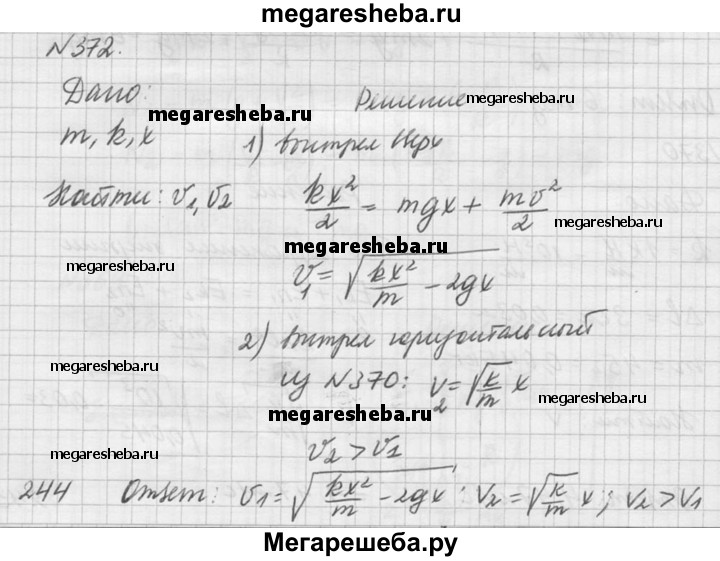 megaresheba.ru
N372.
Дано:
Решение megaresheba.ru
megaresheba.ru
m, k, x
1) выстрел вверх
Найти: v₁, v₂
kx²/2 = mgx + mv²/2
megaresheba.ru
megaresheba.ru
megaresheba.ru
v₁ = √(kx²/m - 2gx)
2) выстрел горизонтальный
megaresheba.ru
из N370: v₂ = √(k/m) x
megaresheba.ru
megaresheba.ru
v₂ > v₁
megaresheba.ru
244 Ответ: v₁ = √(kx²/m - 2gx) ; v₂ = √(k/m) x ; v₂ > v₁
megaresheba.ru
Мегарешеба.ру